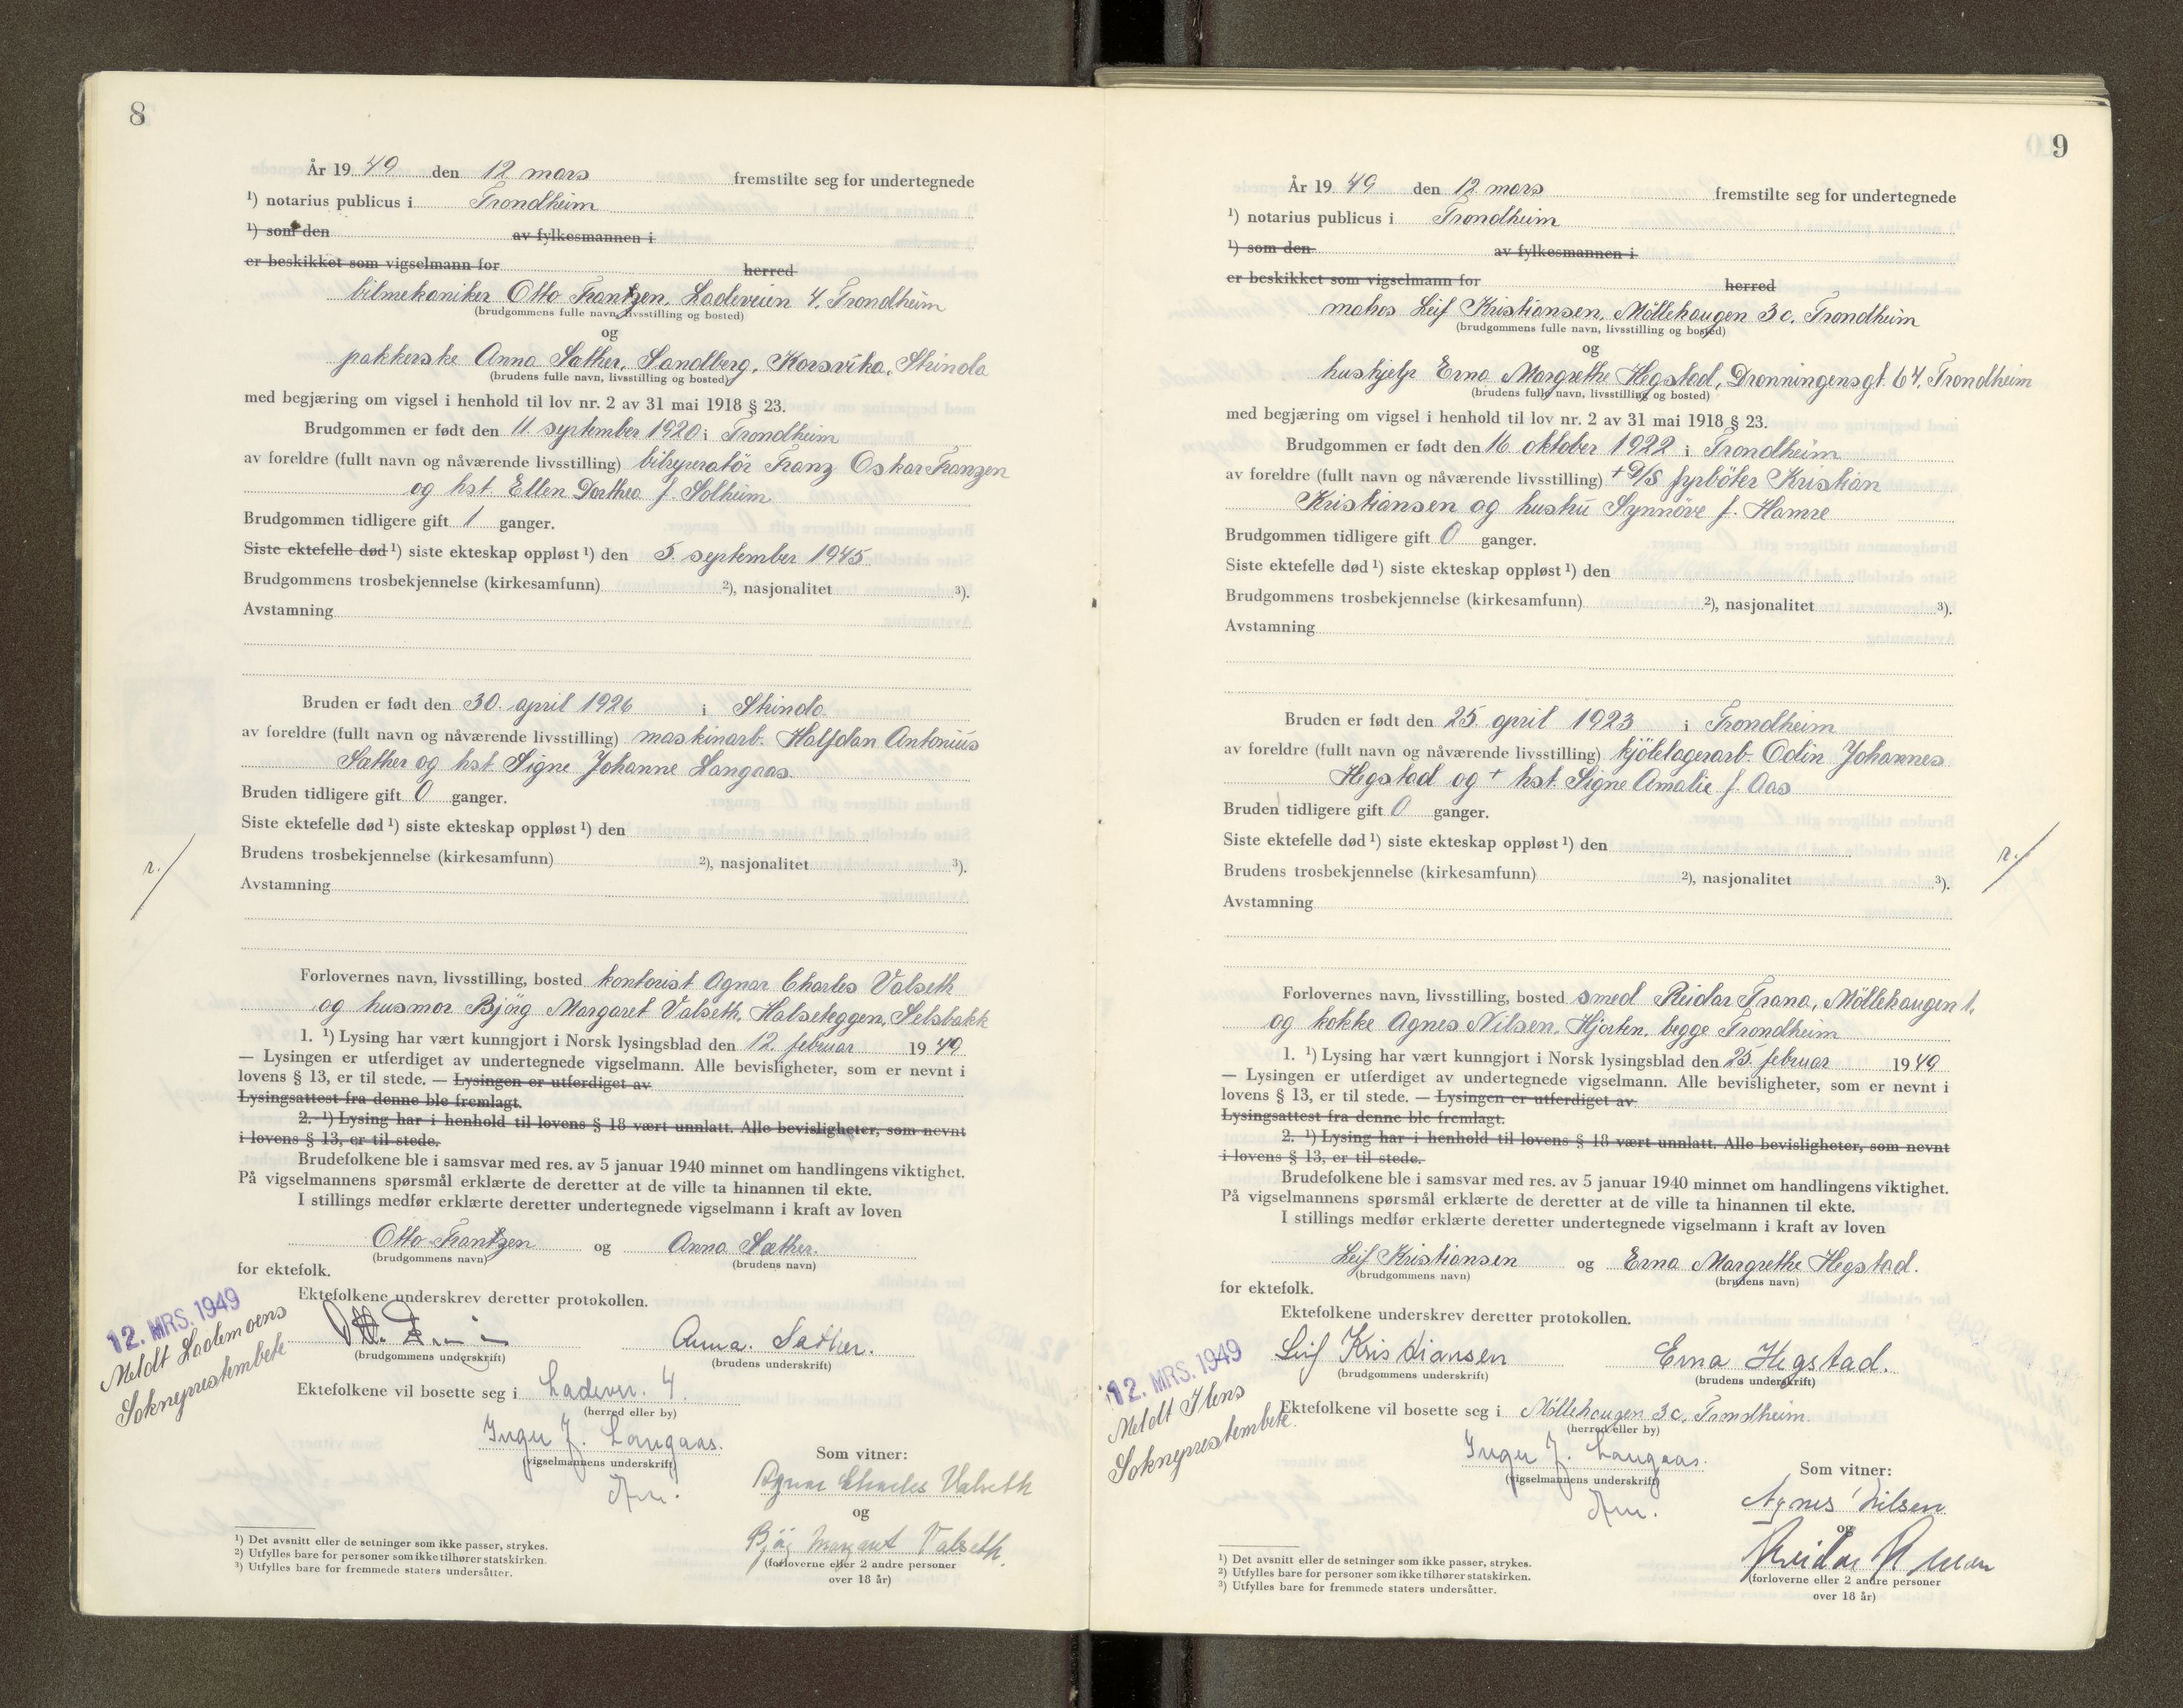 8
År 19 49 den 12 mars fremstilte seg for undertegnede
¹) notarius publicus i Trondheim
¹) som den av fylkesmannen i
er beskikket som vigselmann for herred
bilmekaniker Otto Frantzen, Ladeveien 4, Trondheim
(brudgommens fulle navn, livsstilling og bosted)
og
pakkerske Anna Sæther, Sandberg, Korsvika, Strinda
(brudens fulle navn, livsstilling og bosted)
med begjæring om vigsel i henhold til lov nr. 2 av 31 mai 1918 § 23.
Brudgommen er født den 11. september 1920 i Trondheim
av foreldre (fullt navn og nåværende livsstilling) bilreparatör Franz Oskar Franzen
og hst. Ellen Dorthea f. Solheim
Brudgommen tidligere gift 1 ganger.
Siste ektefelle død ¹) siste ekteskap oppløst ¹) den 5. september 1945
Brudgommens trosbekjennelse (kirkesamfunn) ²), nasjonalitet ³).
Avstamning
Bruden er født den 30. april 1926 i Strinda
av foreldre (fullt navn og nåværende livsstilling) maskinarb. Halfdan Antonius
Sæther og hst. Signe Johanne Langaas.
Bruden tidligere gift 0 ganger.
Siste ektefelle død ¹) siste ekteskap oppløst ¹) den
Brudens trosbekjennelse (kirkesamfunn) ²), nasjonalitet ³).
r./
Avstamning
Forlovernes navn, livsstilling, bosted kontorist Agnar Charles Valseth
og husmor Bjørg Margaret Valseth, Halseteggen, Selsbakk
1. ¹) Lysing har vært kunngjort i Norsk lysingsblad den 12. februar 19 49
— Lysingen er utferdiget av undertegnede vigselmann. Alle bevisligheter, som er nevnt i
lovens § 13, er til stede. — Lysingen er utferdiget av
Lysingsattest fra denne ble fremlagt.
2. ¹) Lysing har i henhold til lovens § 18 vært unnlatt. Alle bevisligheter, som nevnt
i lovens § 13, er til stede.
Brudefolkene ble i samsvar med res. av 5 januar 1940 minnet om handlingens viktighet.
På vigselmannens spørsmål erklærte de deretter at de ville ta hinannen til ekte.
I stillings medfør erklærte deretter undertegnede vigselmann i kraft av loven
Otto Frantzen og Anna Sæther.
(brudgommens navn) (brudens navn)
for ektefolk.
Ektefolkene underskrev deretter protokollen.
12. MRS. 1949
Meldt Lademoens
Sokneprestembete
Anna. Sæther.
(brudgommens underskrift) (brudens underskrift)
Ektefolkene vil bosette seg i Ladevei. 4.
(herred eller by)
Inger J. Langaas.
(vigselmannens underskrift)
Som vitner:
Agnar Charles Valseth
og
Bjørg Margaret Valseth.
(forloverne eller 2 andre personer
over 18 år)
¹) Det avsnitt eller de setninger som ikke passer, strykes.
²) Utfylles bare for personer som ikke tilhører statskirken.
³) Utfylles bare for fremmede staters undersåtter.
9
År 19 49 den 12 mars fremstilte seg for undertegnede
¹) notarius publicus i Trondheim
¹) som den av fylkesmannen i
er beskikket som vigselmann for herred
matros Leif Kristiansen, Möllehaugen 3c, Trondheim
(brudgommens fulle navn, livsstilling og bosted)
og
hushjelp Erna Margrethe Hegstad, Dronningensgt. 64, Trondheim
(brudens fulle navn, livsstilling og bosted)
med begjæring om vigsel i henhold til lov nr. 2 av 31 mai 1918 § 23.
Brudgommen er født den 16 oktober 1922 i Trondheim
av foreldre (fullt navn og nåværende livsstilling) + D/S fyrböter Kristian
Kristiansen og hustru Synnöve f. Hamre
Brudgommen tidligere gift 0 ganger.
Siste ektefelle død ¹) siste ekteskap oppløst ¹) den
Brudgommens trosbekjennelse (kirkesamfunn) ²), nasjonalitet ³).
Avstamning
Bruden er født den 25. april 1923 i Trondheim
av foreldre (fullt navn og nåværende livsstilling) kjölelagerarb. Odin Johannes
Hegstad og + hst. Signe Amalie f. Aas
Bruden tidligere gift 0 ganger.
Siste ektefelle død ¹) siste ekteskap oppløst ¹) den
Brudens trosbekjennelse (kirkesamfunn) ²), nasjonalitet ³).
r./
Avstamning
Forlovernes navn, livsstilling, bosted smed Reidar Trana, Möllehaugen 1.
og kokke Agnes Nilsen, Hjorten, begge Trondheim
1. ¹) Lysing har vært kunngjort i Norsk lysingsblad den 25. februar 19 49
— Lysingen er utferdiget av undertegnede vigselmann. Alle bevisligheter, som er nevnt i
lovens § 13, er til stede. — Lysingen er utferdiget av
Lysingsattest fra denne ble fremlagt.
2. ¹) Lysing har i henhold til lovens § 18 vært unnlatt. Alle bevisligheter, som nevnt
i lovens § 13, er til stede.
Brudefolkene ble i samsvar med res. av 5 januar 1940 minnet om handlingens viktighet.
På vigselmannens spørsmål erklærte de deretter at de ville ta hinannen til ekte.
I stillings medfør erklærte deretter undertegnede vigselmann i kraft av loven
Leif Kristiansen og Erna Margrethe Hegstad.
(brudgommens navn) (brudens navn)
for ektefolk.
Ektefolkene underskrev deretter protokollen.
12. MRS. 1949
Meldt Ilens
Sokneprestembete.
Leif Kristiansen Erna Hegstad.
(brudgommens underskrift) (brudens underskrift)
Ektefolkene vil bosette seg i Möllehaugen 3c, Trondheim.
(herred eller by)
Inger J. Langaas.
(vigselmannens underskrift)
Som vitner:
Agnes Nilsen
og
Reidar Trana
(forloverne eller 2 andre personer
over 18 år)
¹) Det avsnitt eller de setninger som ikke passer, strykes.
²) Utfylles bare for personer som ikke tilhører statskirken.
³) Utfylles bare for fremmede staters undersåtter.